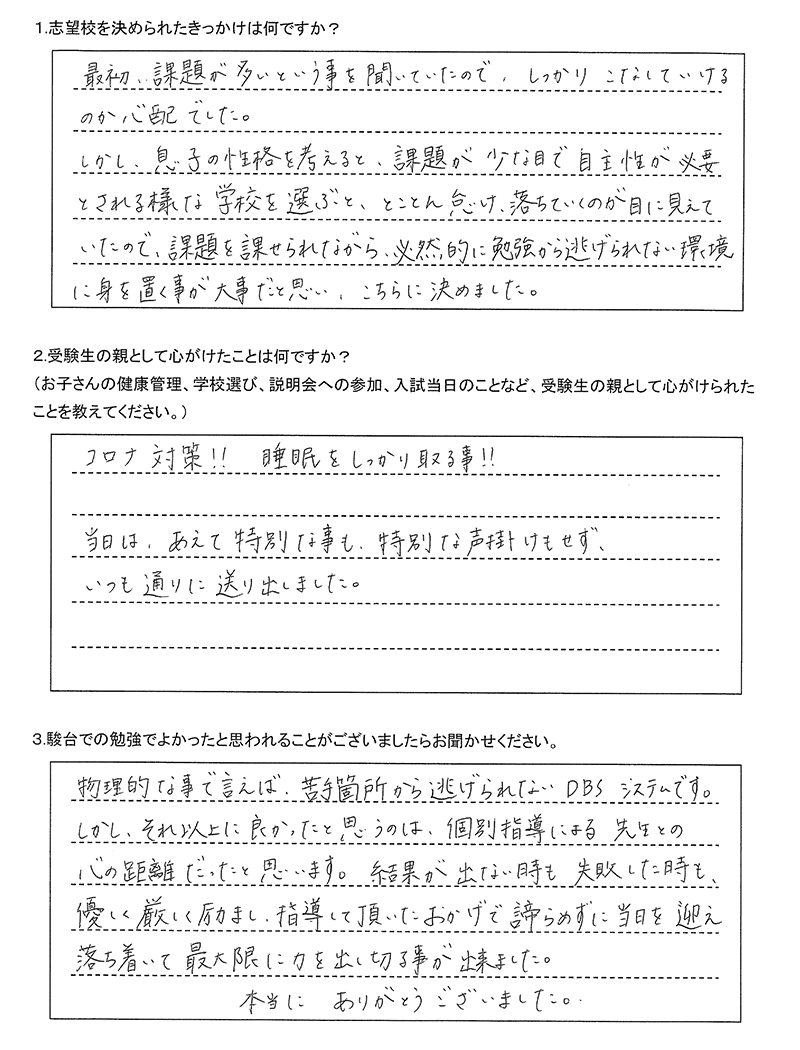 1.志望校を決められたきっかけは何ですか？
最初、課題が多いという事を聞いていたので、しっかりこなしていける
のか心配でした。
しかし、息子の性格を考えると、課題が少な目で自主性が必要
とされる様な学校を選ぶと、とことん怠け、落ちていくのが目に見えて
いたので、課題を課せられながら、必然的に勉強から逃げられない環境
に身を置く事が大事だと思い、こちらに決めました。
2.受験生の親として心がけたことは何ですか？
（お子さんの健康管理、学校選び、説明会への参加、入試当日のことなど、受験生の親として心がけられた
ことを教えてください。）
コロナ対策!! 睡眠をしっかり取る事!!
当日は、あえて特別な事も、特別な声掛けもせず、
いつも通りに送り出しました。
3.駿台での勉強でよかったと思われることがございましたらお聞かせください。
物理的な事で言えば、苦手箇所から逃げられないDBSシステムです。
しかし、それ以上に良かったと思うのは、個別指導による先生との
心の距離だったと思います。結果が出ない時も失敗した時も、
優しく厳しく励まし、指導して頂いたおかげで諦らめずに当日を迎え
落ち着いて最大限に力を出し切る事が出来ました。
本当に ありがとうございました。